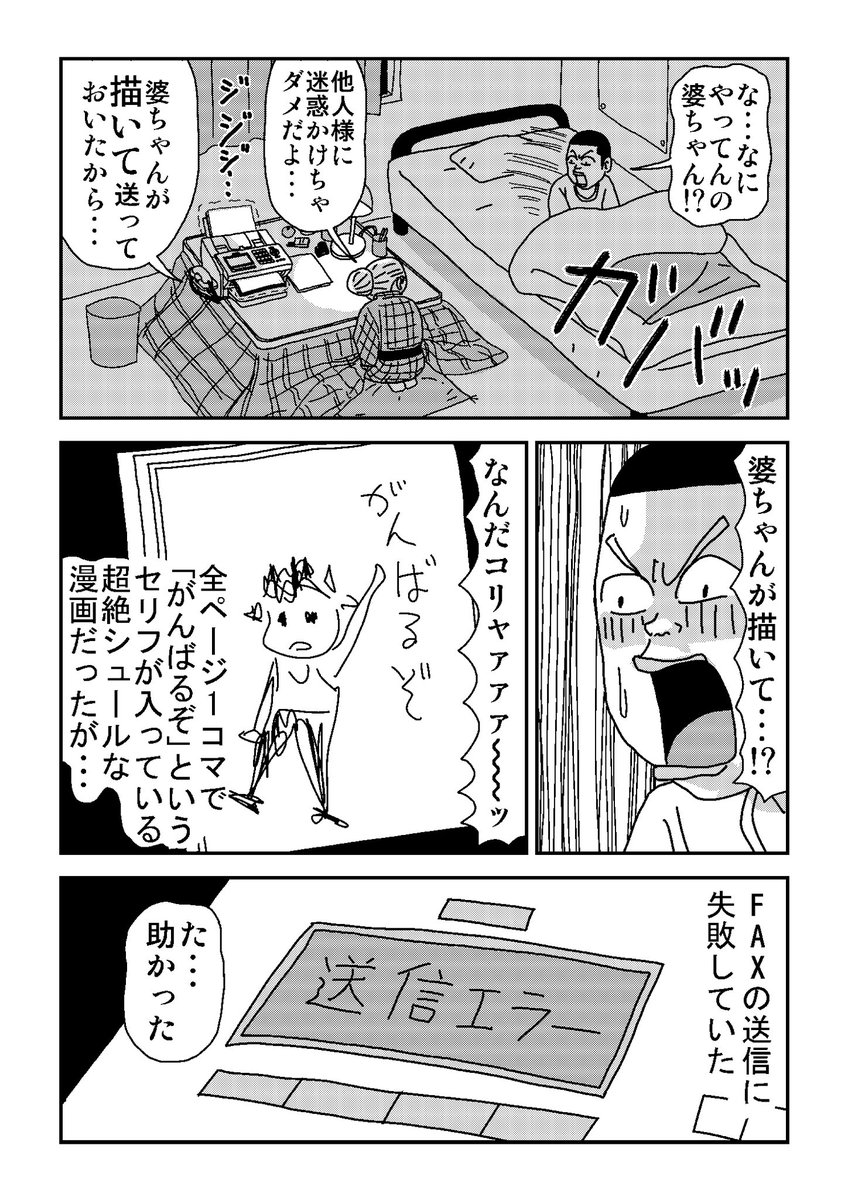 な・・・なに
やってんの
婆ちゃん!?
ガバッ
他人様に
迷惑かけちゃ
ダメだよ・・・
ジジジ・・・
婆ちゃんが
描いて送って
おいたから・・・
婆ちゃんが描いて・・・!?
なんだコリャアァァ～～～ッ
がんばるぞ
全ページ1コマで
「がんばるぞ」という
セリフが入っている
超絶シュールな
漫画だったが・・・
FAXの送信に
失敗していた
送信エラー
た・・・
助かった